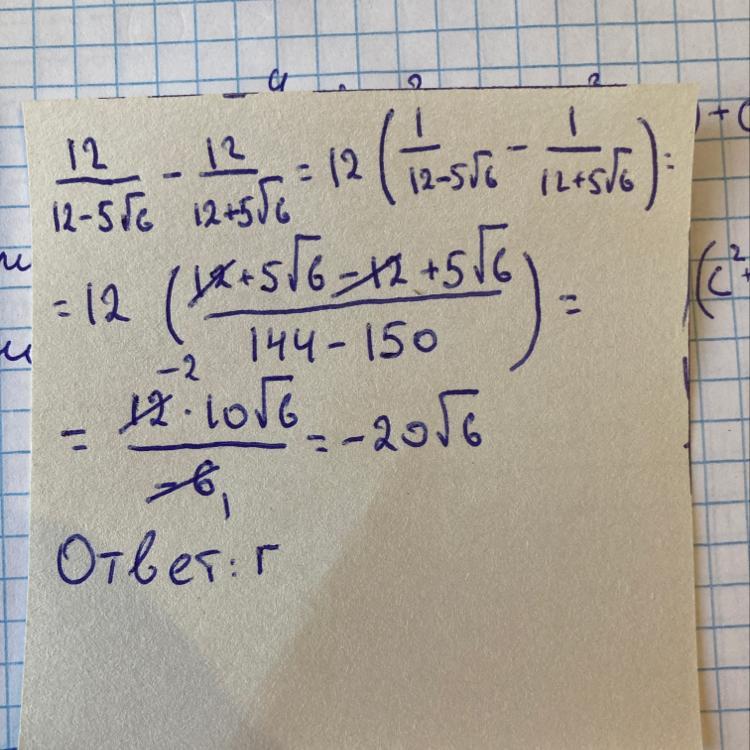 12/(12-5√6) - 12/(12+5√6) = 12 (1/(12-5√6) - 1/(12+5√6)) =
= 12 ((12+5√6-12+5√6)/(144-150)) =
-2
= (12·10√6)/(-6) = -20√6
1
Ответ: г
(c²+